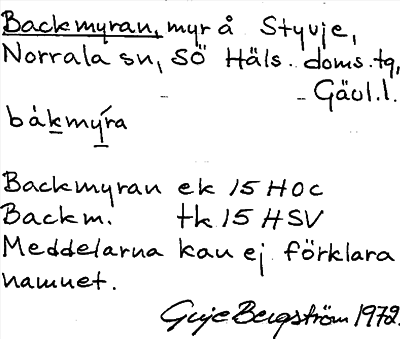 Backmyran, myr å Styvje,
Norrala sn, SÖ Häls. doms.tg,
Gävl.l.
bákmýra
Backmyran ek 15 H 0 c
Backm. tk 15 H SV
Meddelarna kan ej förklara
namnet.
Guje Bergström 1972.